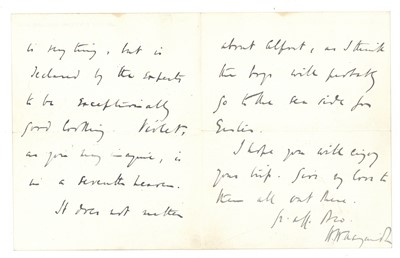 is very tiny, but is
declared by the experts
to be exceptionally
good looking. Violet,
as you may imagine, is
in a seventh heaven.
It does not matter
about, as I think
the boys will probably
go to the sea side for
Easter.
I hope you will enjoy
your trip. Give my love to
them all out there.
Yr. aff. Bro.